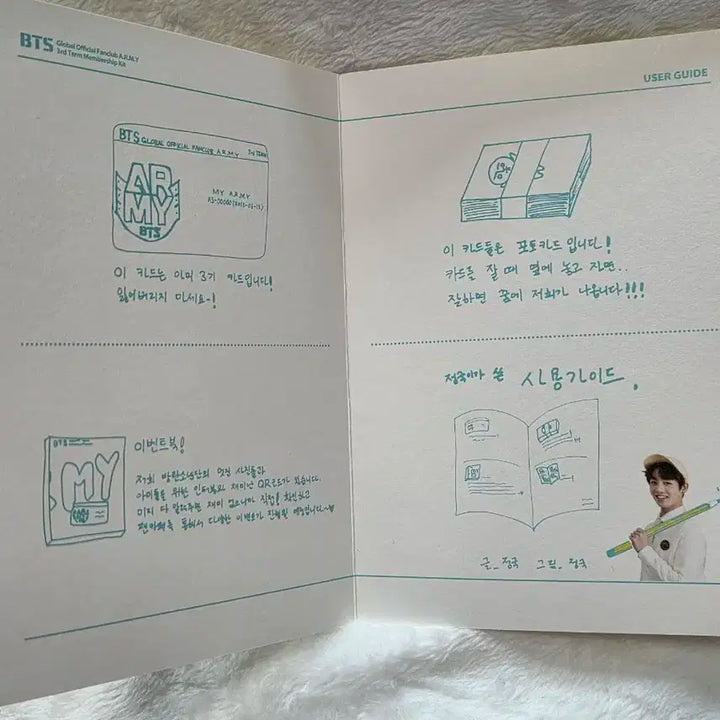 BTS Global Official Fanclub A.R.M.Y
3rd Term Membership Kit
BTS GLOBAL OFFICIAL FANCLUB A.R.M.Y 3rd TERM
ARMY
BTS
MY A.R.M.Y
이 카드는 아미 3기 카드입니다!
잃어버리지 마세요~!
BTS
MY
이벤트북!
저희 방탄소년단의 멋진 사진들과
아미들을 위한 인터뷰와 재미난 QR코드가 있습니다.
미리 다 알려주면 재미 없으니까 직접! 확인하고
팬마케팅을 통해서 다양한 이벤트가 진행될 예정입니다~
USER GUIDE
이 카드들은 포토카드 입니다!
카드를 잘 때 옆에 놓고 자면..
잘하면 꿈에 저희가 나옵니다!!!
정국이가 쓴 사용가이드.
글_정국 그림_정국